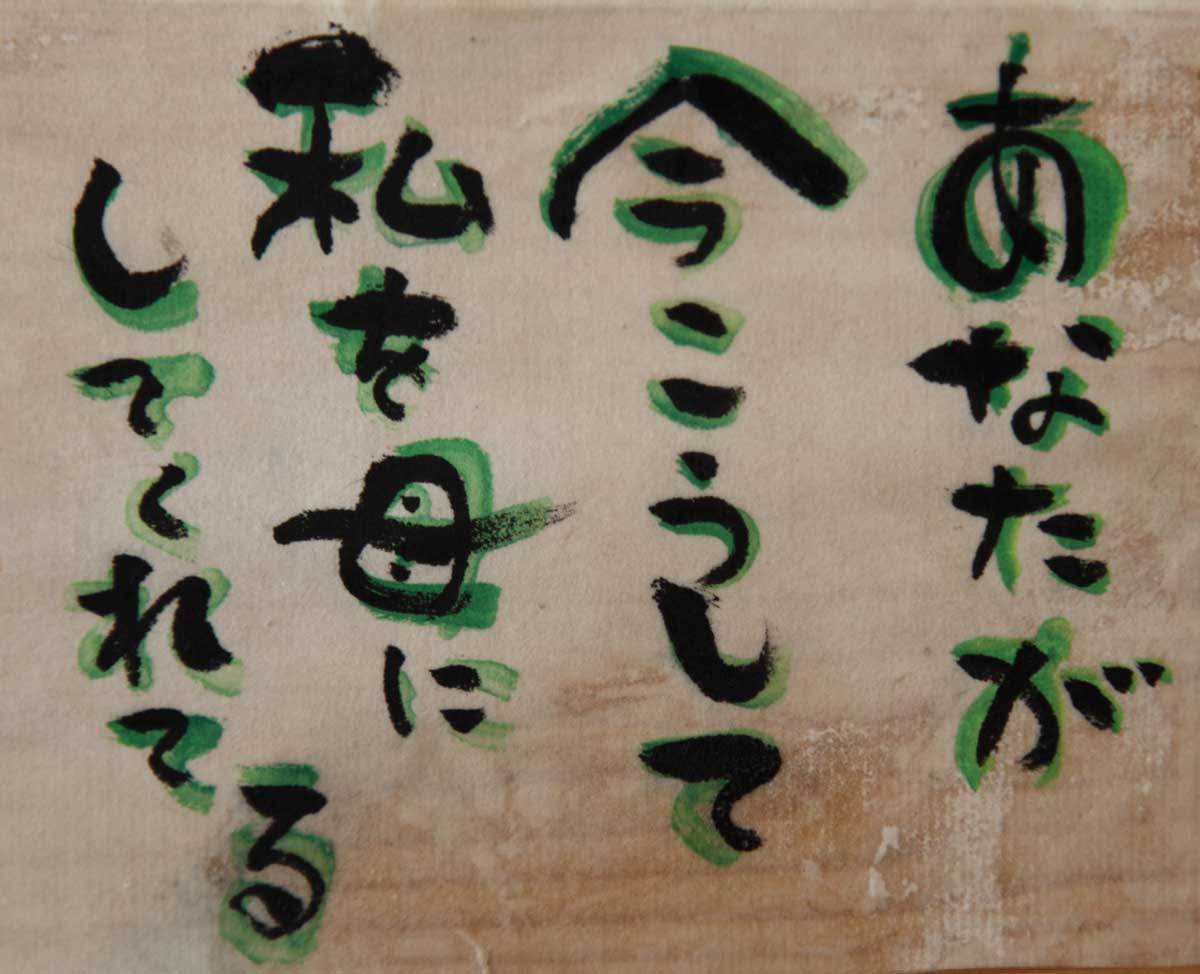 あなたが
今こうして
私を母に
してくれてる